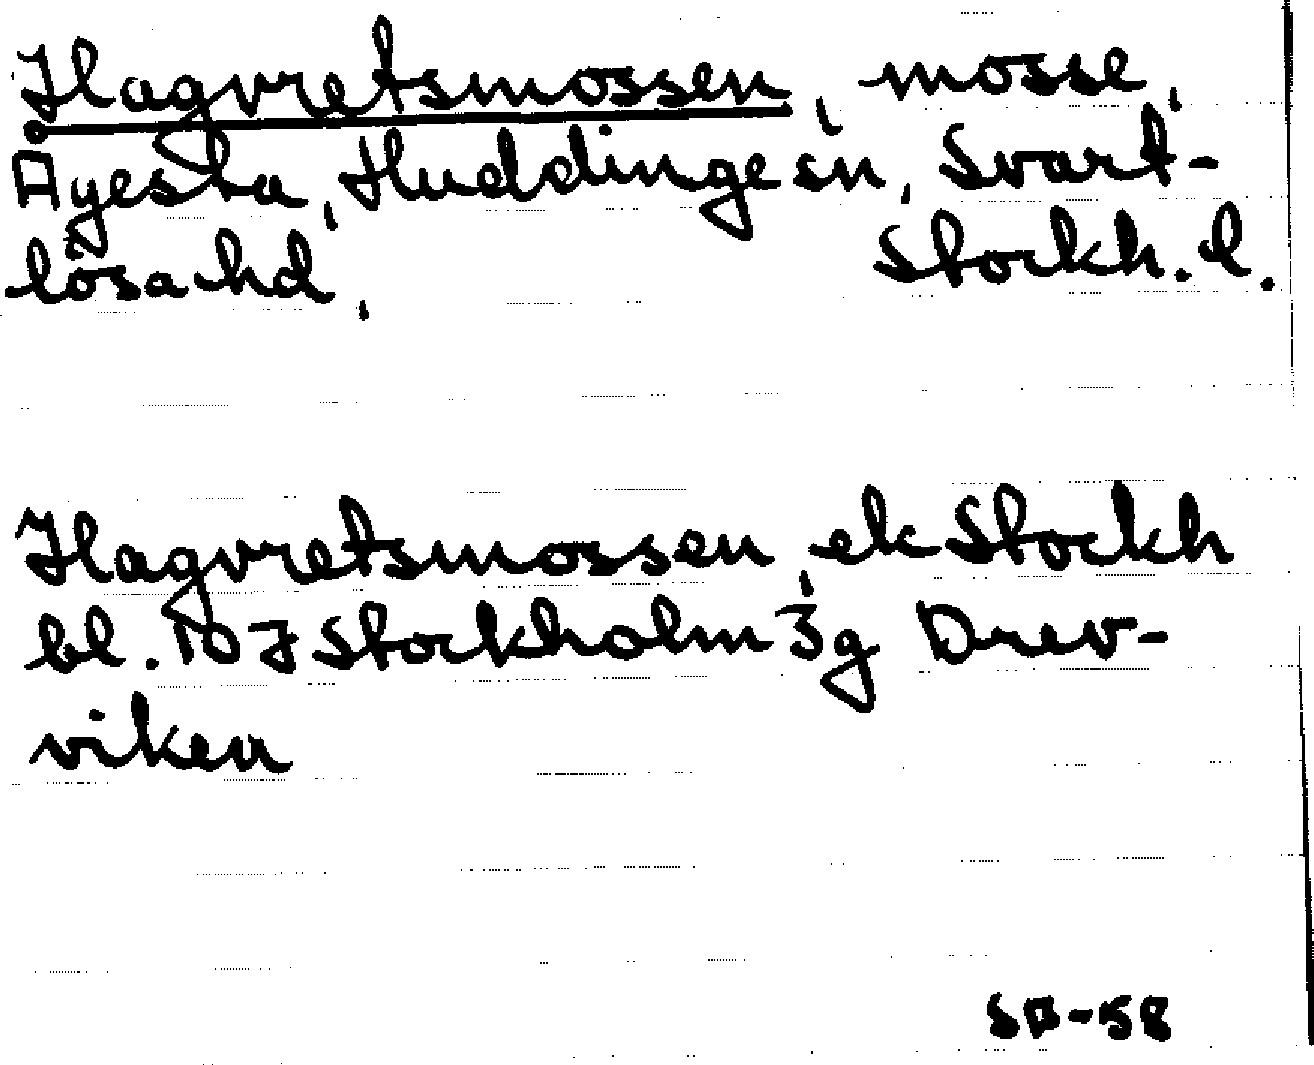 Hagvretsmossen, mosse,
Ågesta, Huddinge sn, Svart-
lösa hd. Stockh. l.
Hagvretsmossen, ek Stockh
bl. 10 J Stockholm 3g Drev-
viken
SB-58